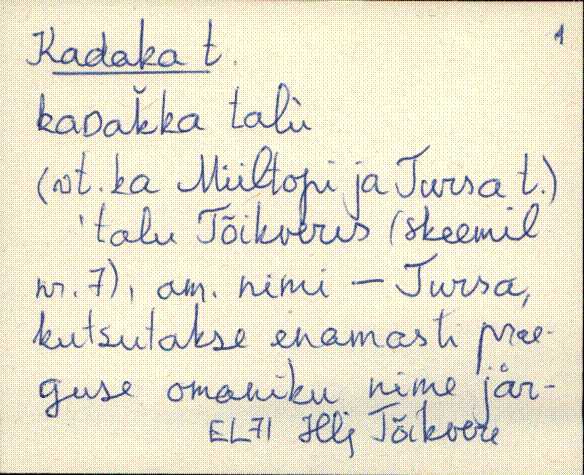 Kadaka t.
1
kaᴅak̆ka talù
(vt. ka Miiltopi ja Tursa t.)
'talu Tõikveres (skeemil
nr. 7), am. nimi — Tursa,
kutsutakse enamasti prae-
guse omaniku nime jär-
EL71 Hlj Tõikvere